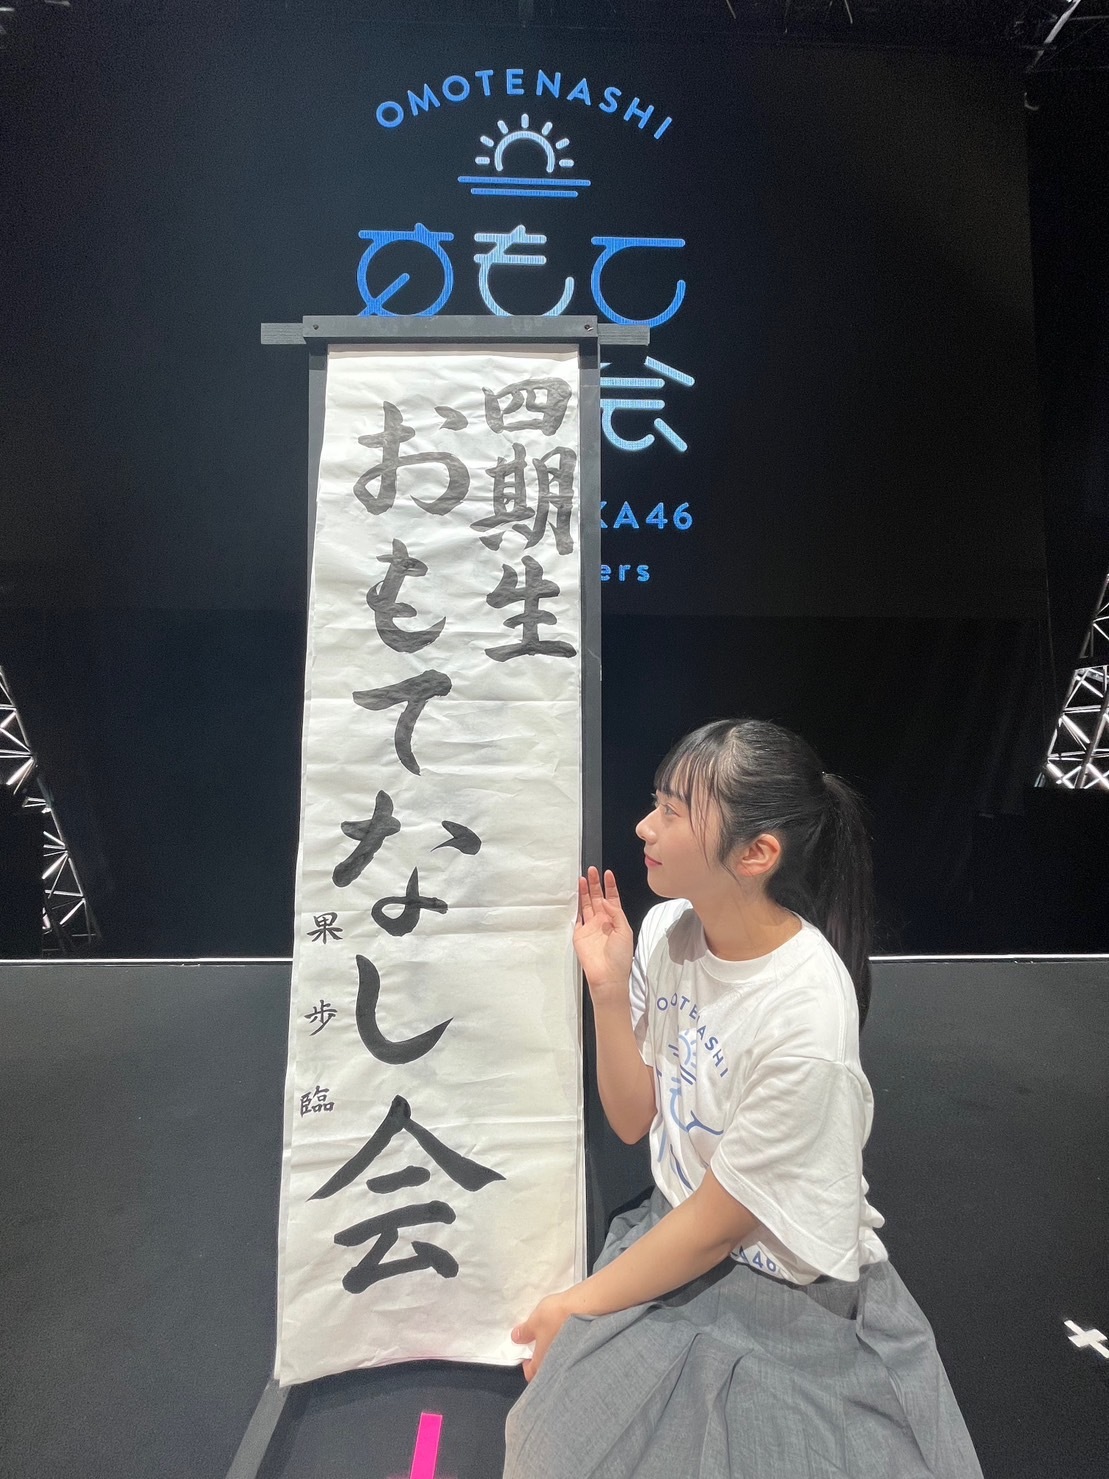 OMOTENASHI
おもて
会
KA46
ers
四期生
おもてなし会
果歩臨
OMOTENASHI
A46